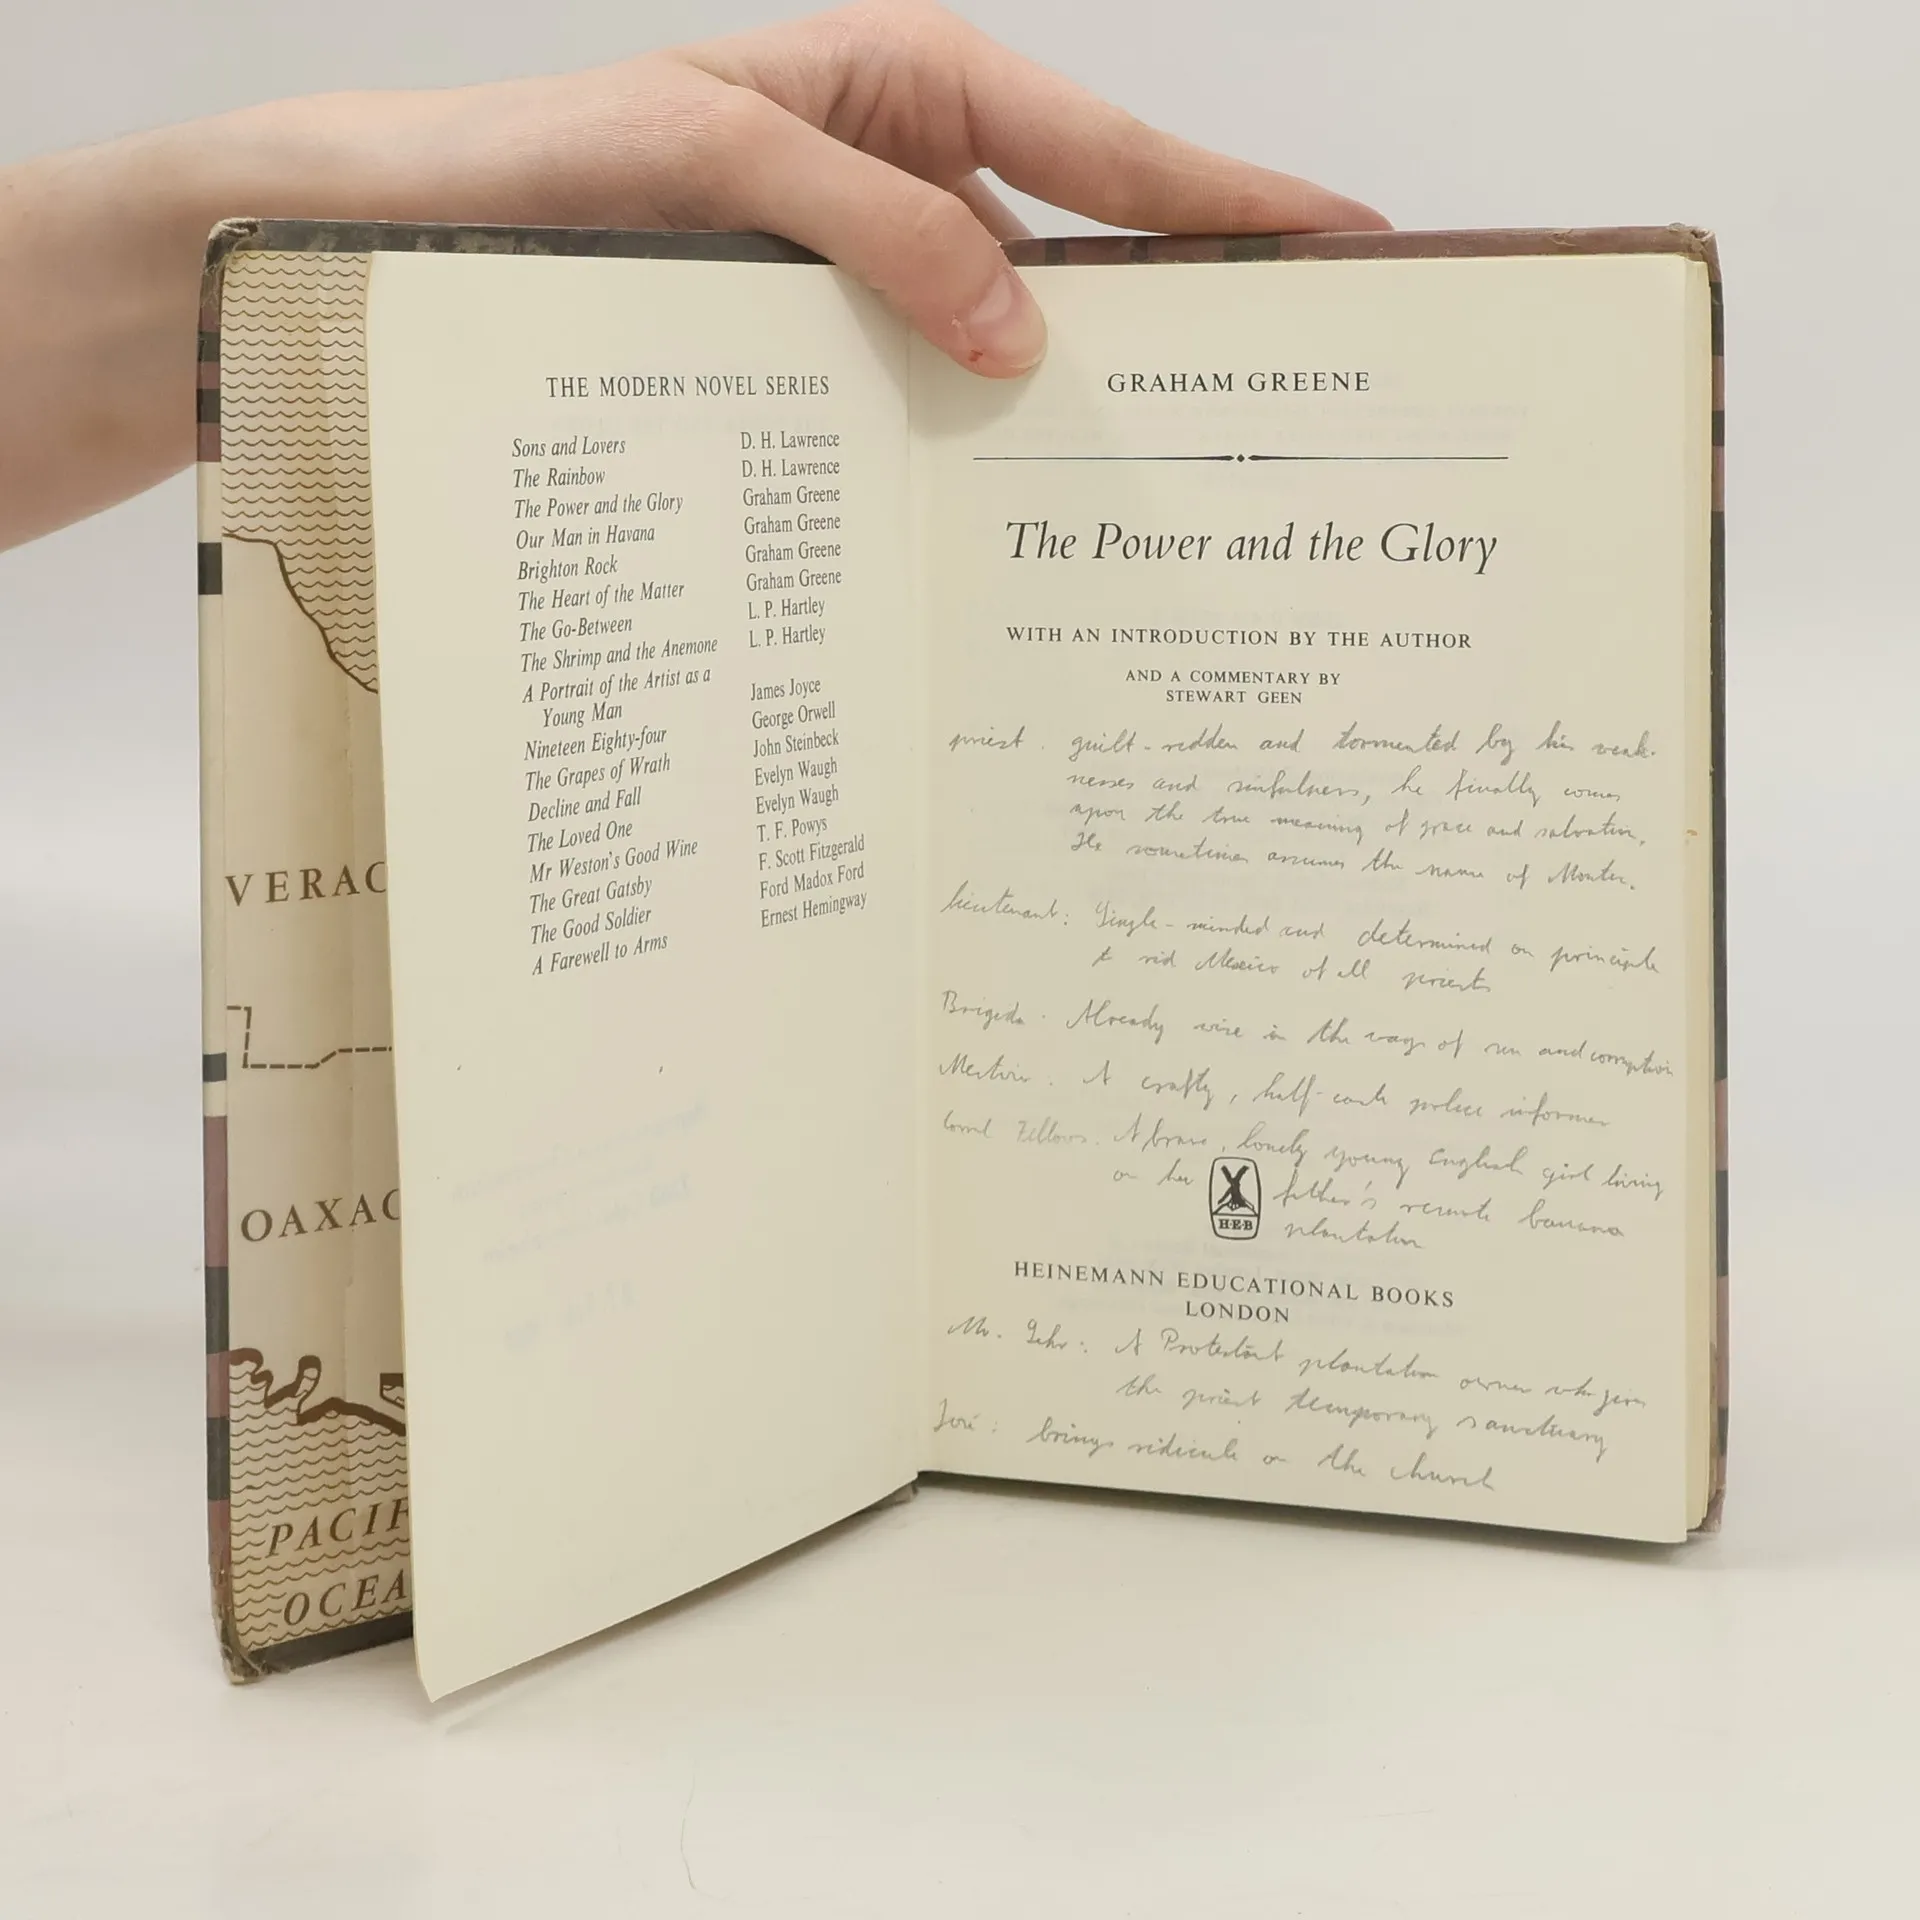 VERAC
OAXAC
PACIF
OCEA
THE MODERN NOVEL SERIES
Sons and Lovers D. H. Lawrence
The Rainbow D. H. Lawrence
The Power and the Glory Graham Greene
Our Man in Havana Graham Greene
Brighton Rock Graham Greene
The Heart of the Matter Graham Greene
The Go-Between L. P. Hartley
The Shrimp and the Anemone L. P. Hartley
A Portrait of the Artist as a
Young Man James Joyce
Nineteen Eighty-four George Orwell
The Grapes of Wrath John Steinbeck
Decline and Fall Evelyn Waugh
The Loved One Evelyn Waugh
Mr Weston's Good Wine T. F. Powys
The Great Gatsby F. Scott Fitzgerald
The Good Soldier Ford Madox Ford
A Farewell to Arms Ernest Hemingway
GRAHAM GREENE
The Power and the Glory
WITH AN INTRODUCTION BY THE AUTHOR
AND A COMMENTARY BY
STEWART GEEN
priest. guilt-ridden and tormented by his weak-
nesses and sinfulness, he finally comes
upon the true meaning of grace and salvation.
He sometimes assumes the name of Montez.
lieutenant: Single-minded and determined on principle
to rid Mexico of all priests
Brigida. Already wise in the ways of sin and corruption
Mestizo. A crafty, half-caste police informer
Coral Fellows. A brave, lonely young English girl living
on her father's remote banana
plantation
H·E·B
HEINEMANN EDUCATIONAL BOOKS
LONDON
Mr. Lehr: A Protestant plantation owner who gives
the priest temporary sanctuary
José: brings ridicule on the church